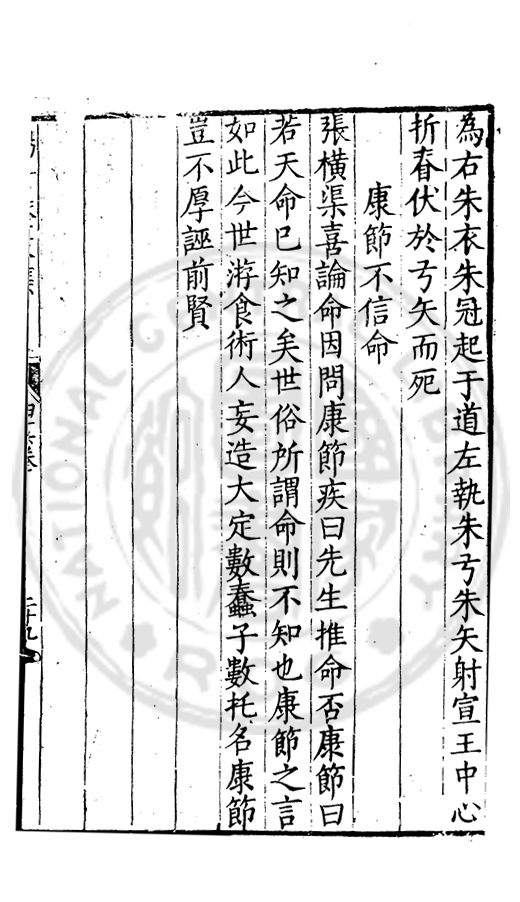 為右朱衣朱冠起于道左執朱弓朱矢射宣王中心
折脊伏於弓矢而死
康節不信命
張橫渠喜論命因問康節疾曰先生推命否康節曰
若天命已知之矣世俗所謂命則不知也康節之言
如此今世游食術人妄造大定數蠢子數托名康節
豈不厚誣前賢